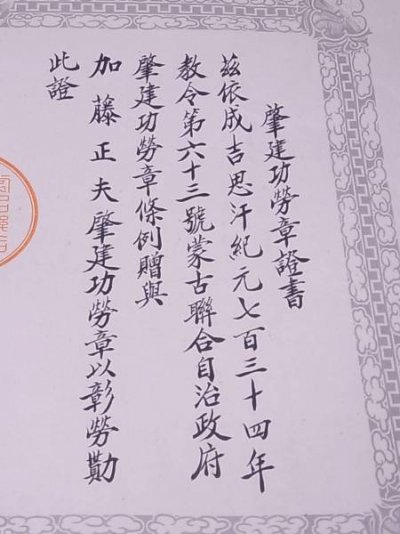 肇建功勞章證書
茲依成吉思汗紀元七百三十四年
教令第六十三號蒙古聯合自治政府
肇建功勞章條例贈與
加藤正夫肇建功勞章以彰勞勳
此證